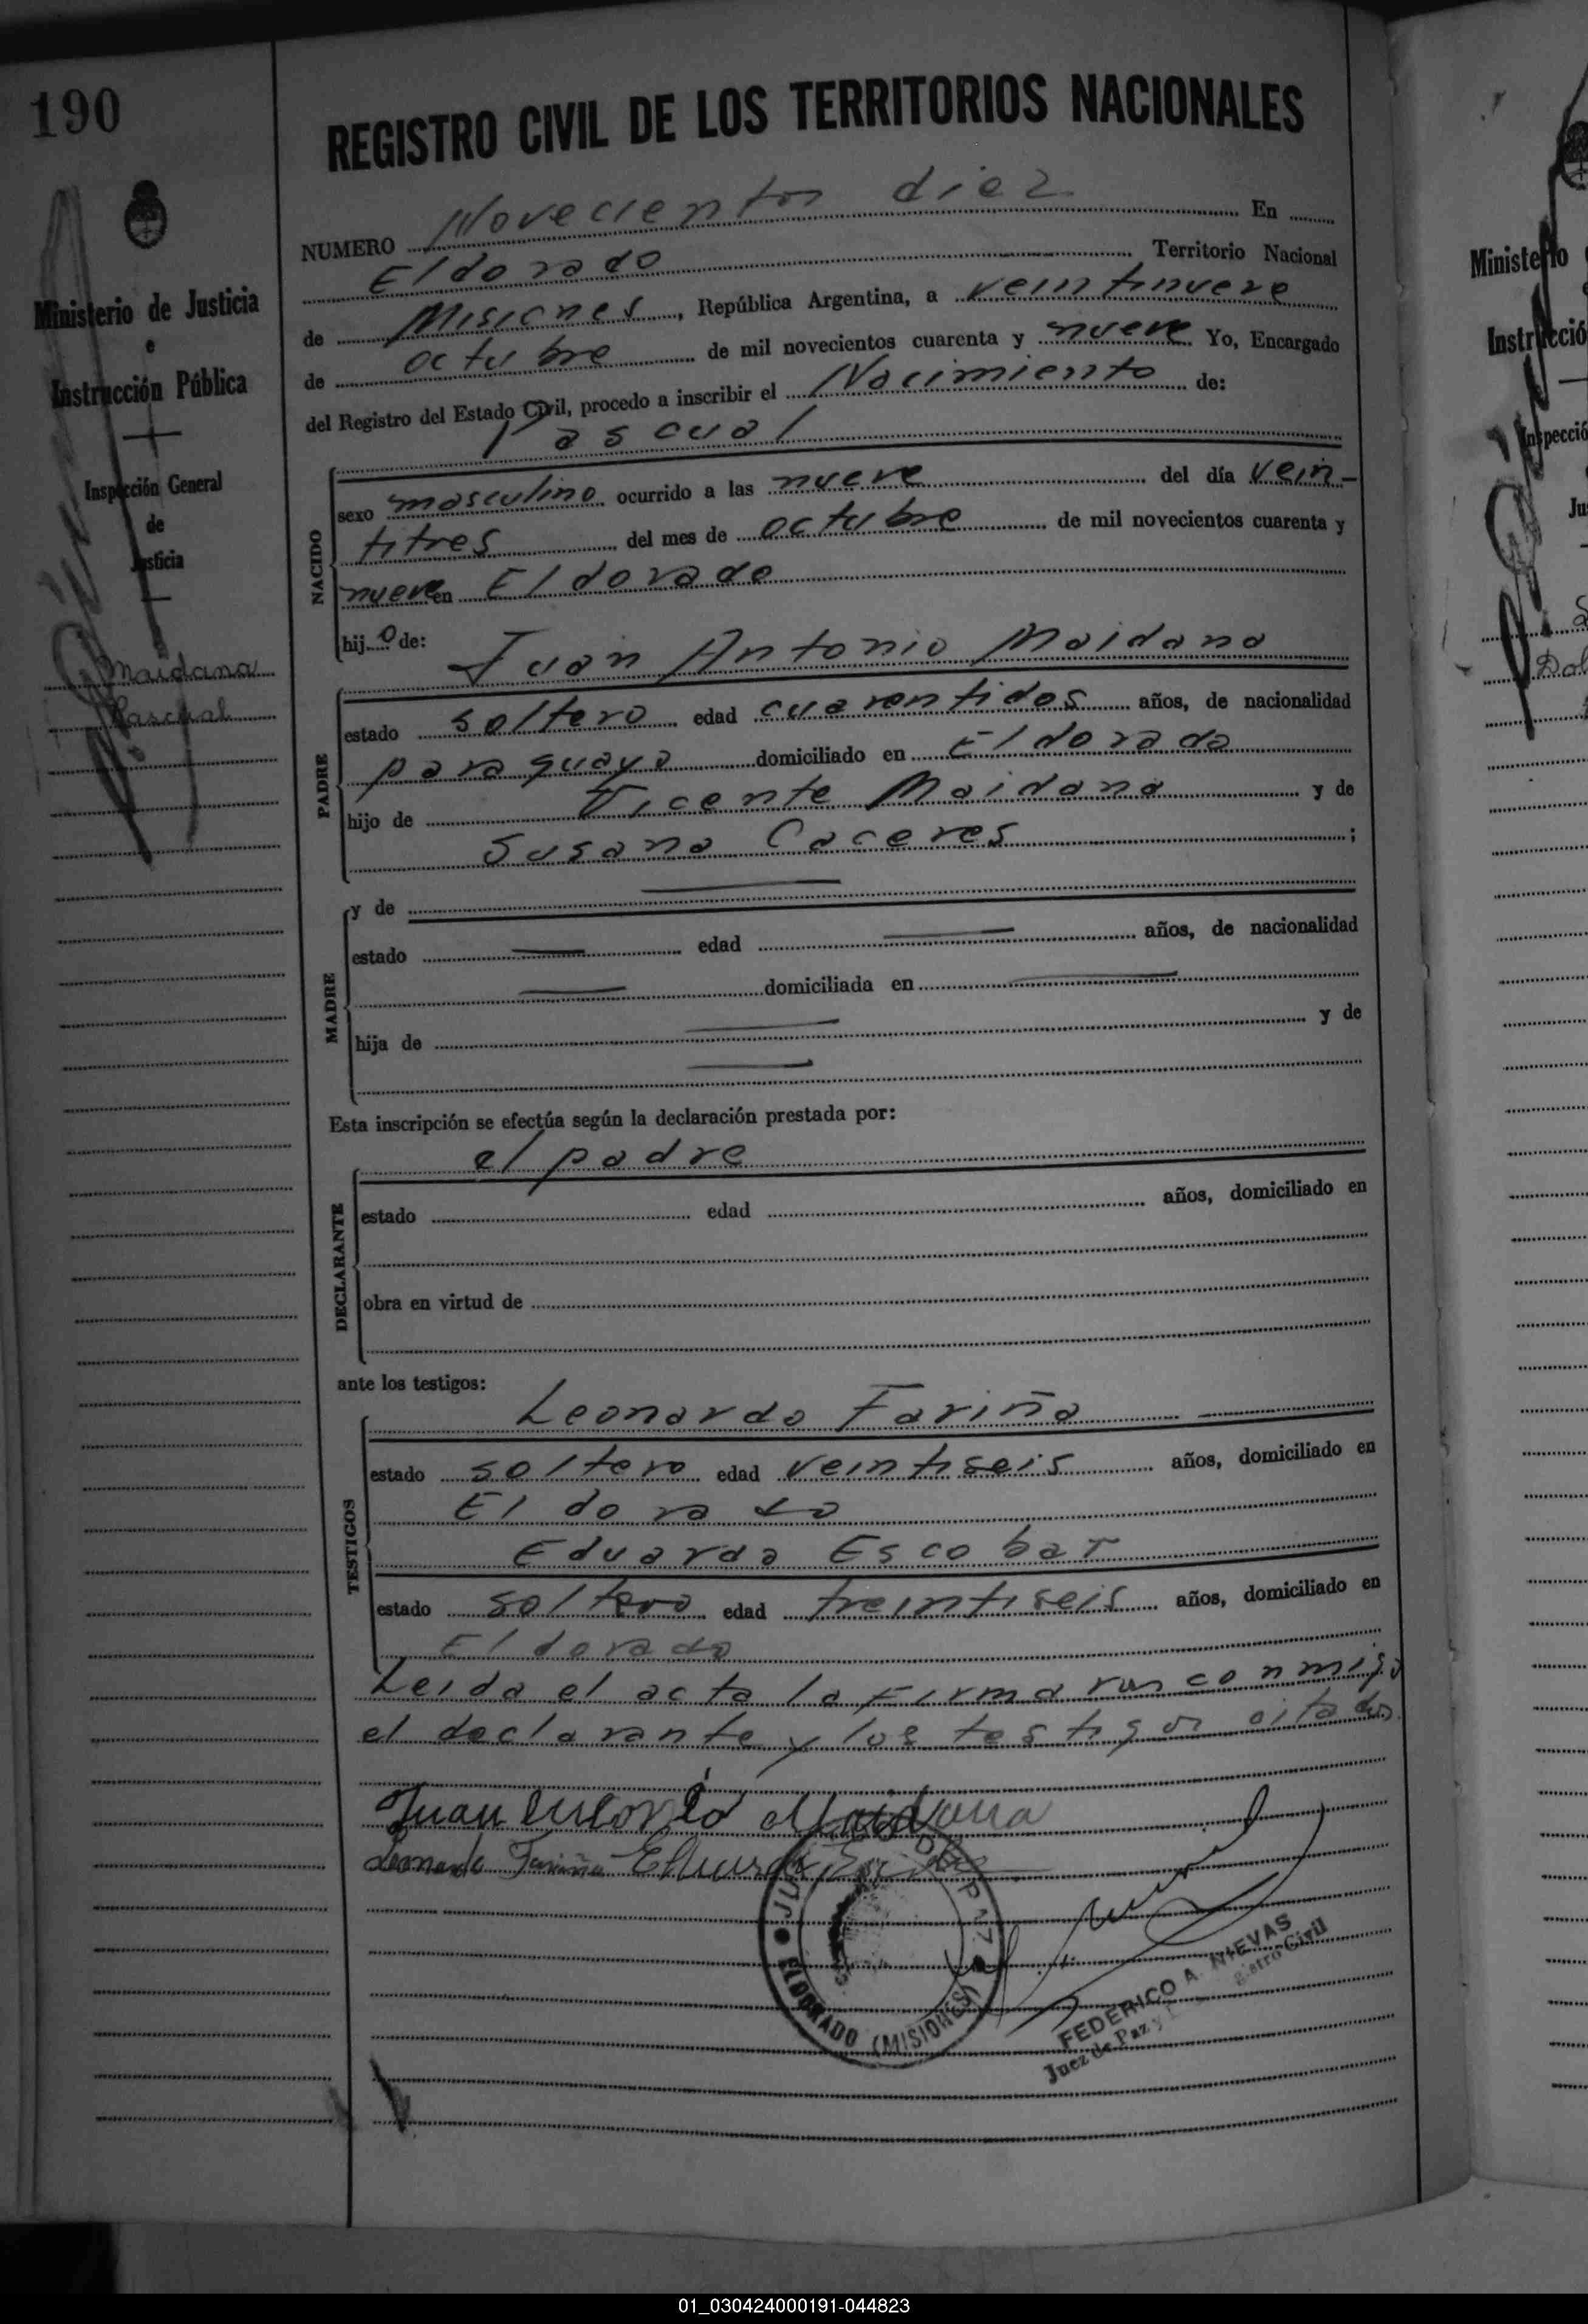 190
REGISTRO CIVIL DE LOS TERRITORIOS NACIONALES
Ministerio de Justicia
e
Instrucción Pública
Inspección General
de
Justicia
Maidana
Pascual
NUMERO Novecientos diez En
Eldorado Territorio Nacional
de Misiones, República Argentina, a veintinueve
de octubre de mil novecientos cuarenta y nueve Yo, Encargado
del Registro del Estado Civil, procedo a inscribir el Nacimiento de:
Pascual
NACIDO
sexo masculino ocurrido a las nueve del día vein-
titres del mes de octubre de mil novecientos cuarenta y
nueve en Eldorado
hijo de:
Juan Antonio Maidana
PADRE
estado soltero edad cuarentidos años, de nacionalidad
paraguaya domiciliado en Eldorado
hijo de Vicente Maidana y de
Susana Caceres ;
MADRE
y de
estado edad años, de nacionalidad
domiciliada en
hija de y de
Esta inscripción se efectúa según la declaración prestada por:
el padre
DECLARANTE
estado edad años, domiciliado en
obra en virtud de
ante los testigos:
Leonardo Fariña
TESTIGOS
estado soltero edad veintiseis años, domiciliado en
Eldorado
Eduardo Escobar
estado soltero edad treintiseis años, domiciliado en
Eldorado
Leida el acta la firmaron conmigo
el declarante y los testigos citados.
Juan Antonio Maidana
Leonardo Fariña Eduardo
ELDORADO (MISIONES)
FEDERICO A. NIEVAS
Juez de Paz y Registro Civil
Ministerio
Instrucció
Inspecció
Ju
Dol
01_030424000191-044823